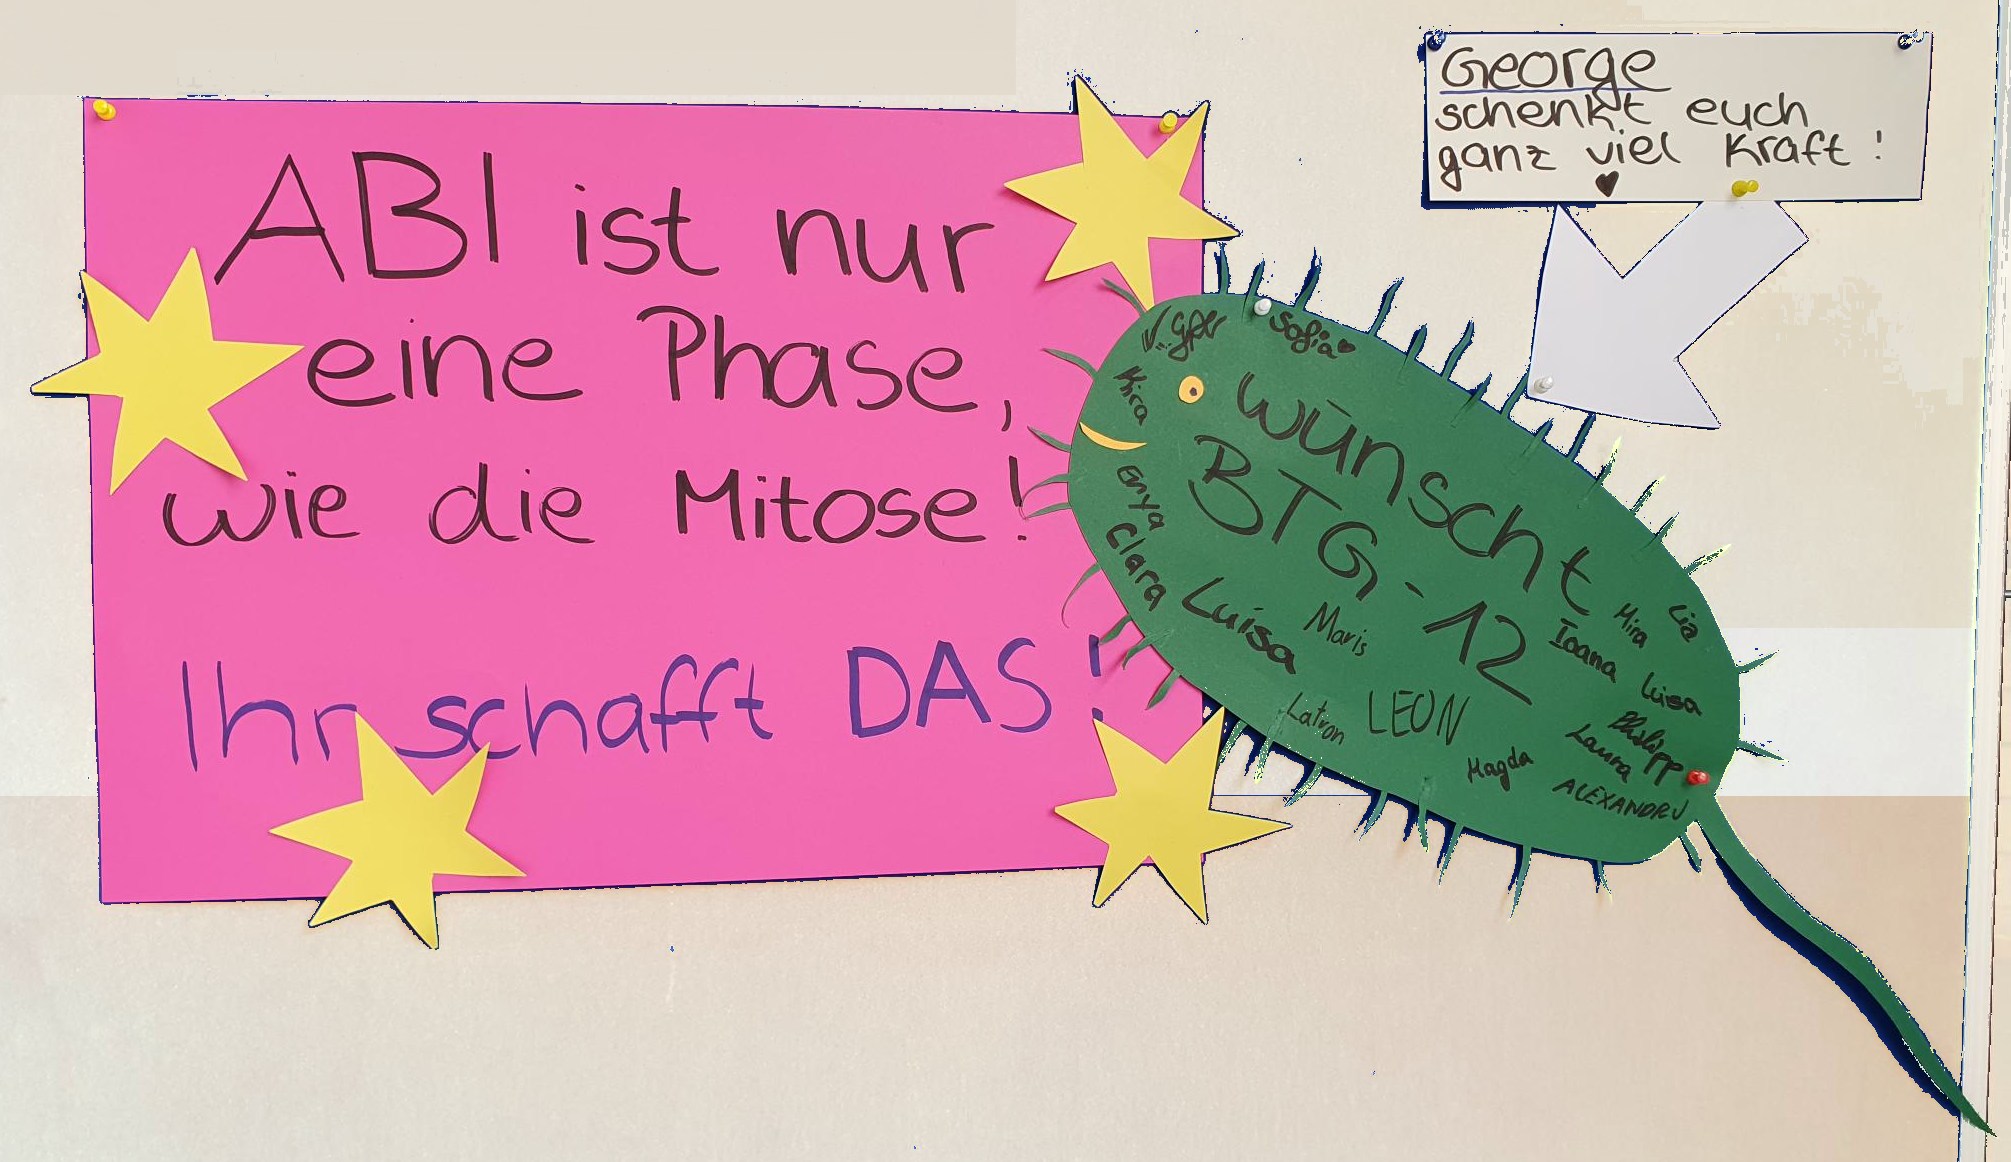 ABI ist nur
eine Phase,
wie die Mitose!
Ihr schafft DAS!
George
schenkt euch
ganz viel Kraft!
Sofia
Kira
wünscht
BTG-12
Enya
Clara
Luisa
Maris
Mira
Lia
Ioana
Luisa
LEON
Philipp
Laura
Magda
ALEXANDRU